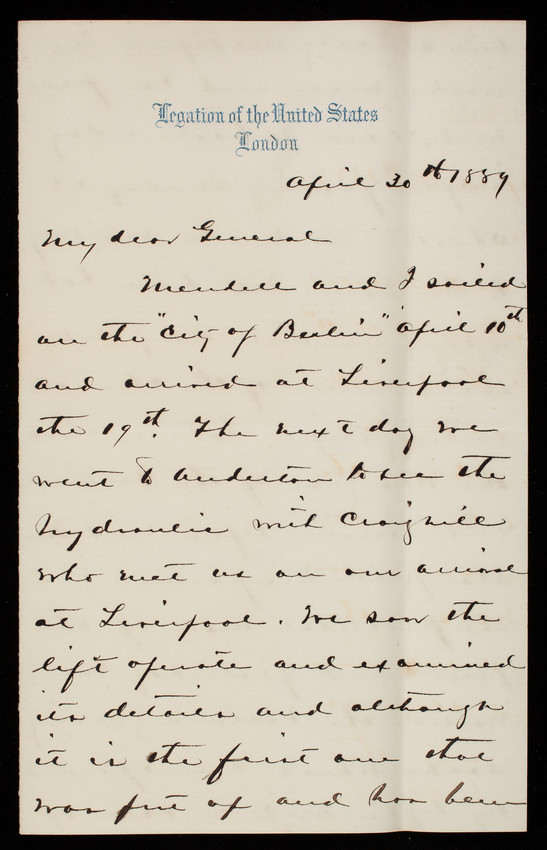 Legation of the United States
London
April 30th 1889
My dear General
Mendell and I sailed
on the "City of Berlin" April 10th
and arrived at Liverpool
the 19th. The next day we
went to Anderton to see the
hydraulic with Craighill
who met us on our arrival
at Liverpool. We saw the
lift operate and examined
its details and although
it is the first one that
was put up and has been